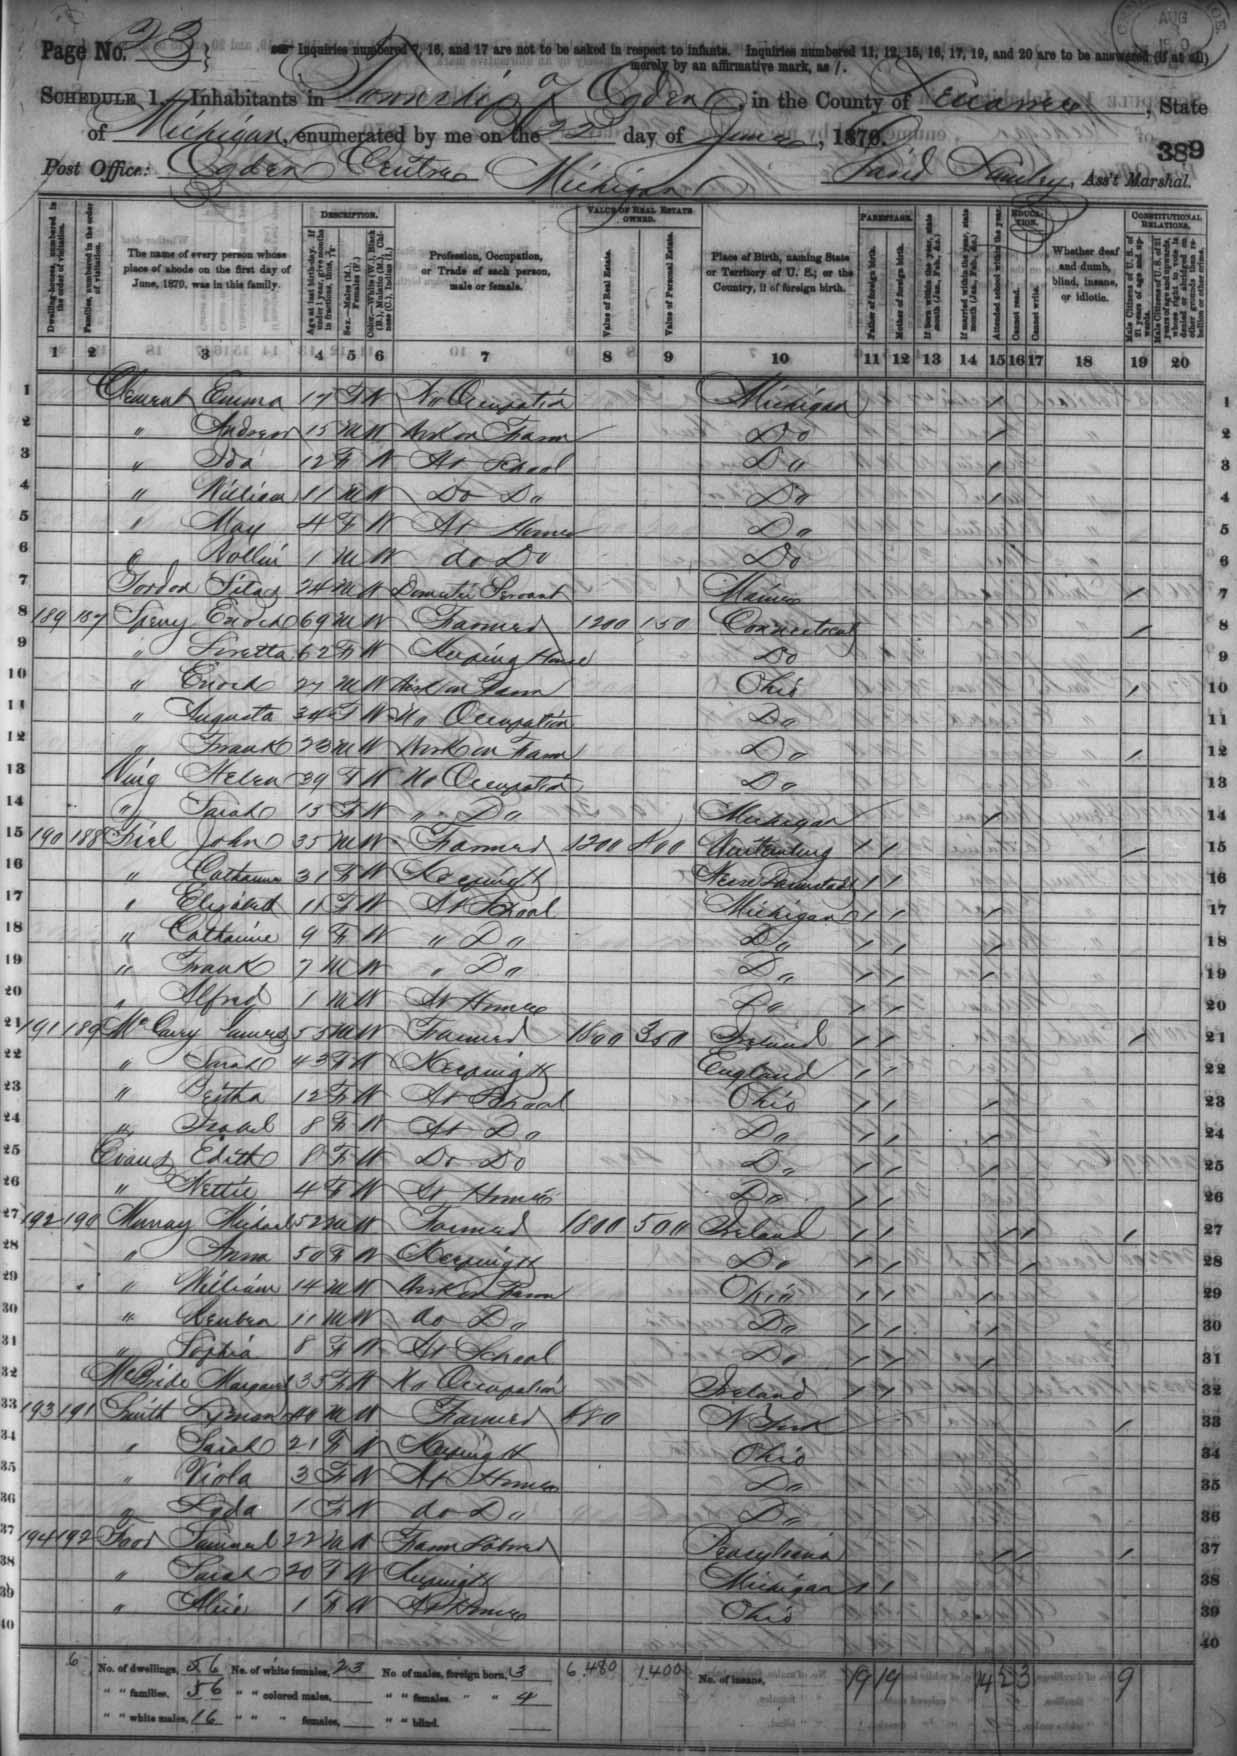 Page No. 23
Inquiries numbered 7, 16, and 17 are not to be asked in respect to infants. Inquiries numbered 11, 12, 15, 16, 17, 19, and 20 are to be answered (if at all)
merely by an affirmative mark, as /.
Schedule 1.—Inhabitants in Township of Ogden, in the County of Lenawee, State
of Michigan, enumerated by me on the 22 day of June, 1870.
389
Post Office: Ogden Centre Michigan David, Ass't Marshal.
Description. Value of Real Estate owned. Parentage. Education. Constitutional Relations.
Dwelling-houses, numbered in the order of visitation.
Families, numbered in the order of visitation.
The name of every person whose place of abode on the first day of June, 1870, was in this family.
Age at last birth-day. If under 1 year, give months in fractions, thus, 3/12
Sex.—Males (M.), Females (F.)
Color.—White (W.), Black (B.), Mulatto (M.), Chinese (C.), Indian (I.)
Profession, Occupation, or Trade of each person, male or female.
Value of Real Estate.
Value of Personal Estate.
Place of Birth, naming State or Territory of U. S.; or the Country, if of foreign birth.
Father of foreign birth.
Mother of foreign birth.
If born within the year, state month (Jan., Feb., &c.)
If married within the year, state month (Jan., Feb., &c.)
Attended school within the year.
Cannot read.
Cannot write.
Whether deaf and dumb, blind, insane, or idiotic.
Male Citizens of U. S. of 21 years of age and upwards.
Male Citizens of U. S. of 21 years of age and upwards, whose right to vote is denied or abridged on other grounds than rebellion or other crime.
1 2 3 4 5 6 7 8 9 10 11 12 13 14 15 16 17 18 19 20
1 Clement Emma 17 F W No Occupation Michigan / 1
2 " Andrew 15 M W Work on Farm Do / 2
3 " Ida 12 F W At School Do / 3
4 " William 11 M W Do Do Do / 4
5 " May 4 F W At Home Do 5
6 " 1 M W do Do Do 6
7 Gordon Silas 24 M W Domestic Servant Maine / 7
8 189 187 Sperry Enoch 69 M W Farmer 1200 150 Connecticut / 8
9 " Loretta 62 F W Keeping House Do 9
10 " Enoch 27 M W Work on Farm Ohio / 10
11 " Augusta 34 F W No Occupation Do 11
12 " Frank 23 M W Work on Farm Do / 12
13 Helen 39 F W No Occupation Do 13
14 " Sarah 15 F W " Do Michigan / 14
15 190 188 John 35 M W Farmer 1200 400 Wurtemburg / / / 15
16 " Catharine 31 F W Keeping H Hesse Darmstadt / / 16
17 " Elizabeth 11 F W At School Michigan / / / 17
18 " Catharine 9 F W " Do Do / / / 18
19 " Frank 7 M W " Do Do / / / 19
20 " Alfred 1 M W At Home Do / / 20
21 191 189 James 55 M W Farmer 1800 350 Ireland / / / 21
22 " Sarah 43 F W Keeping H England / / 22
23 " Bertha 12 F W At School Ohio / / / 23
24 " Isabel 8 F W At Do Do / / / 24
25 Evans Edith 8 F W Do Do Do / / / 25
26 " Nettie 4 F W At Home Do / / 26
27 192 190 Murray Michael 52 M W Farmer 1800 500 Ireland / / / / / 27
28 " Anna 50 F W Keeping H Do / / / 28
29 " William 14 M W Work on Farm Ohio / / / 29
30 " Reuben 11 M W do Do Do / / / 30
31 " Sophia 8 F W At School Do / / / 31
32 McBride Margaret 35 F W No Occupation Ireland / / 32
33 193 191 Smith Lyman 49 M W Farmer 480 N York / 33
34 " Sarah 21 F W Keeping H Ohio 34
35 " Viola 3 F W At Home Do 35
36 " Lyda 1 F W do Do Do 36
37 194 192 Samuel 22 M W Farm Laborer Pensylvania / / / 37
38 " Sarah 20 F W Keeping H Michigan / / 38
39 " Alice 1 F W At Home Ohio 39
40 40
6 No. of dwellings, 56 No. of white females, 23 No. of males, foreign born, 3 6,480 1,400 No. of insane, 19 19 14 2 3 9
" " families, 56 " " colored males, " " females, " " 4
" " white males, 16 " " " females, " " blind.